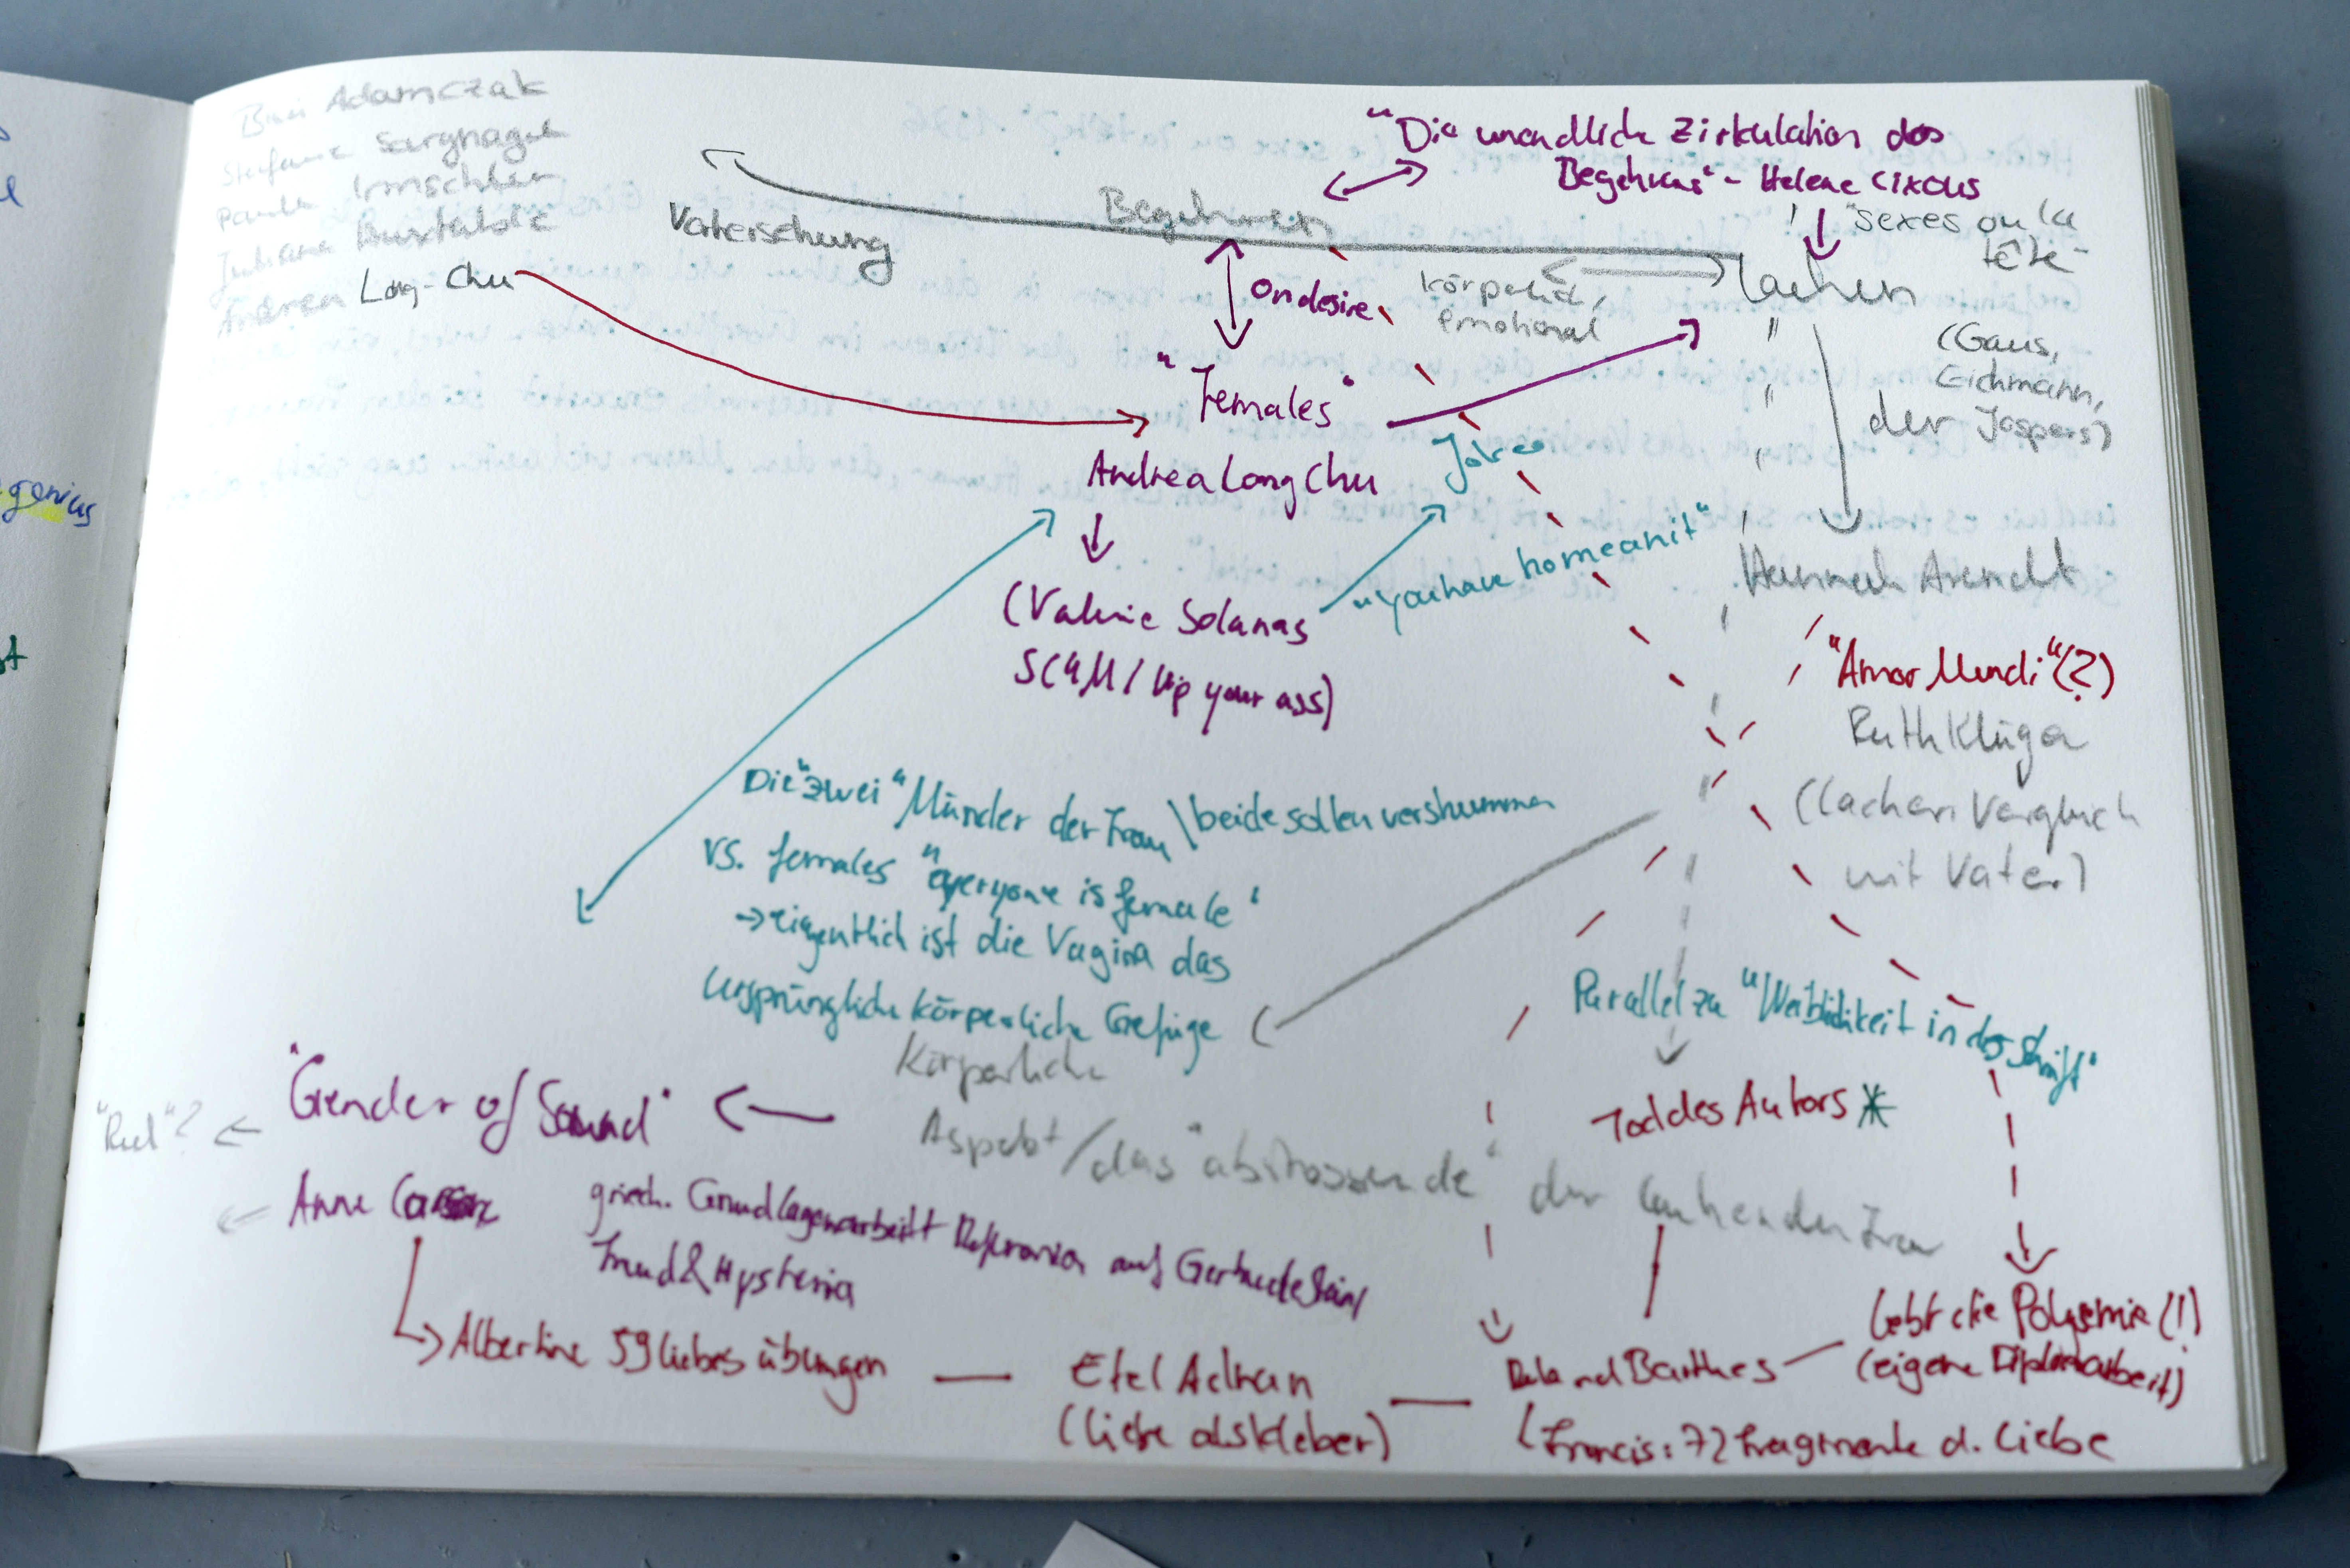 Bini Adamczak
Stefanie Sargnagel
Paula Irmschler
Andrea Long-Chu
"Die unendliche Zirkulation des
Begehrens" - Helene Cixous
"sexes ou la
tête"
Begehren
Vatersehung
on desire
körperlich,
emotional
lachen
(Gaus,
Eichmann,
der Jaspers)
"Females"
Andrea Long Chu
Jokes
"you have to mean it"
(Valerie Solanas
SCUM / Up your ass)
Hannah Arendt
"Amor Mundi" (?)
Ruth Klüger
(lachen Vergleich
mit Vater)
Die "zwei" Münder der Frau \ beide sollen verstummen
vs. females "everyone is female"
→ eigentlich ist die Vagina das
ursprüngliche körperliche Gefüge
Parallel zu "Weiblichkeit in der Schrift"
Körperliche
Aspekt / das "abstossende" der lachenden Frau
Tod des Autors *
"Gender of Sound"
Anne
griech. Grundlagenarbeit Referenz auf Gertrude Stein /
Freud & Hysteria
Albertine 59 liebesübungen
Etel Adnan
(liebe als kleber)
Roland Barthes
lebt die Polysemie (!)
(eigene Diplomarbeit)
Francis: 72 Fragmente d. Liebe
genius